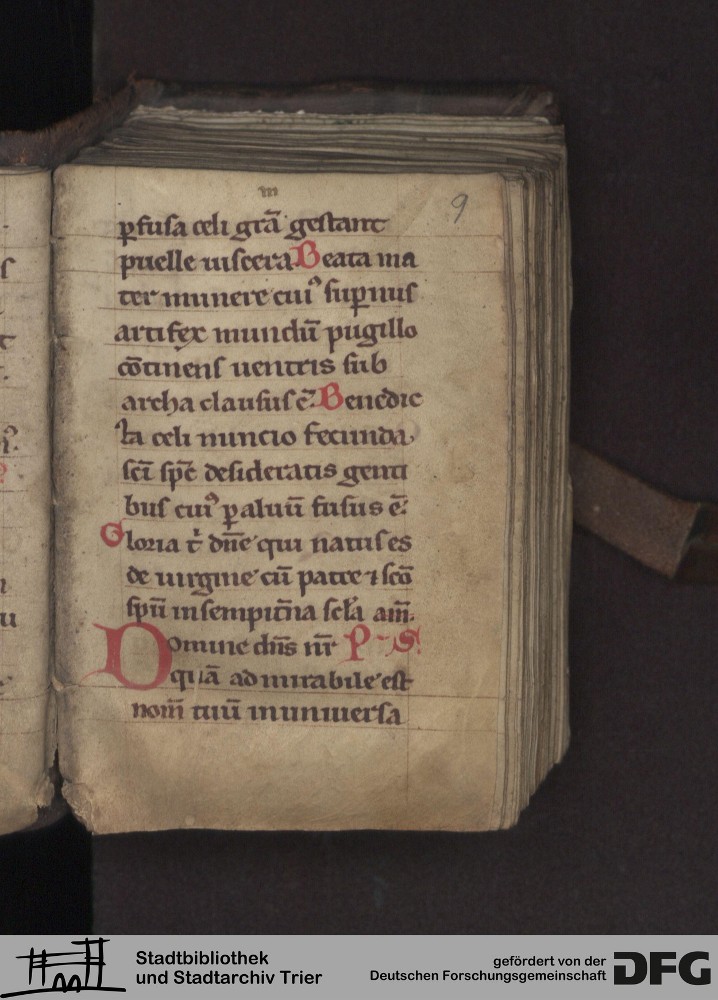 m
9
ꝑfusa celi grā gestant
puelle uiscera Beata ma
ter munere cuiꝰ suꝑnus
artifex mundū pugillo
cōtinens uentris sub
archa clausus ē. Benedic
ta celi nuncio fecunda
scī spc̄ desideratis genti
bus cuiꝰ ꝑ aluū fusus ē.
Gloria t dn̄e qui natus es
de uirgine cū patre ⁊ scō
spū in sempit̄na scla am̄.
Domine dn̄s nr̄ Ps
quā admirabile est
nom̄ tuū in uniuersa
Stadtbibliothek
und Stadtarchiv Trier
gefördert von der
Deutschen Forschungsgemeinschaft
DFG